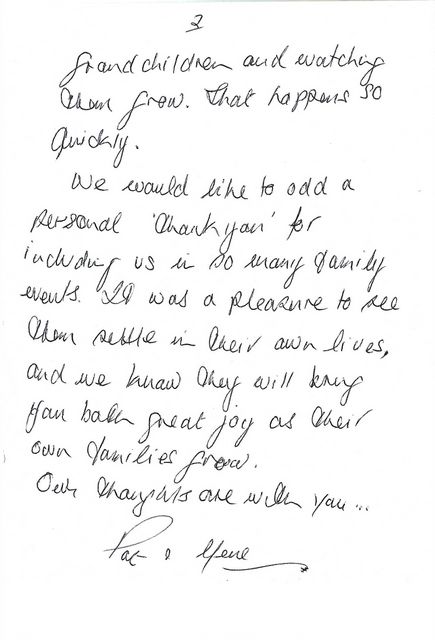 2
grandchildren and watching
them grow. That happens so
quickly.
We would like to add a
personal 'thank you' for
including us in so many family
events. It was a pleasure to see
them settle in their own lives,
and we know they will bring
you both great joy as their
own families grow.
Our thoughts are with you...
Pat &